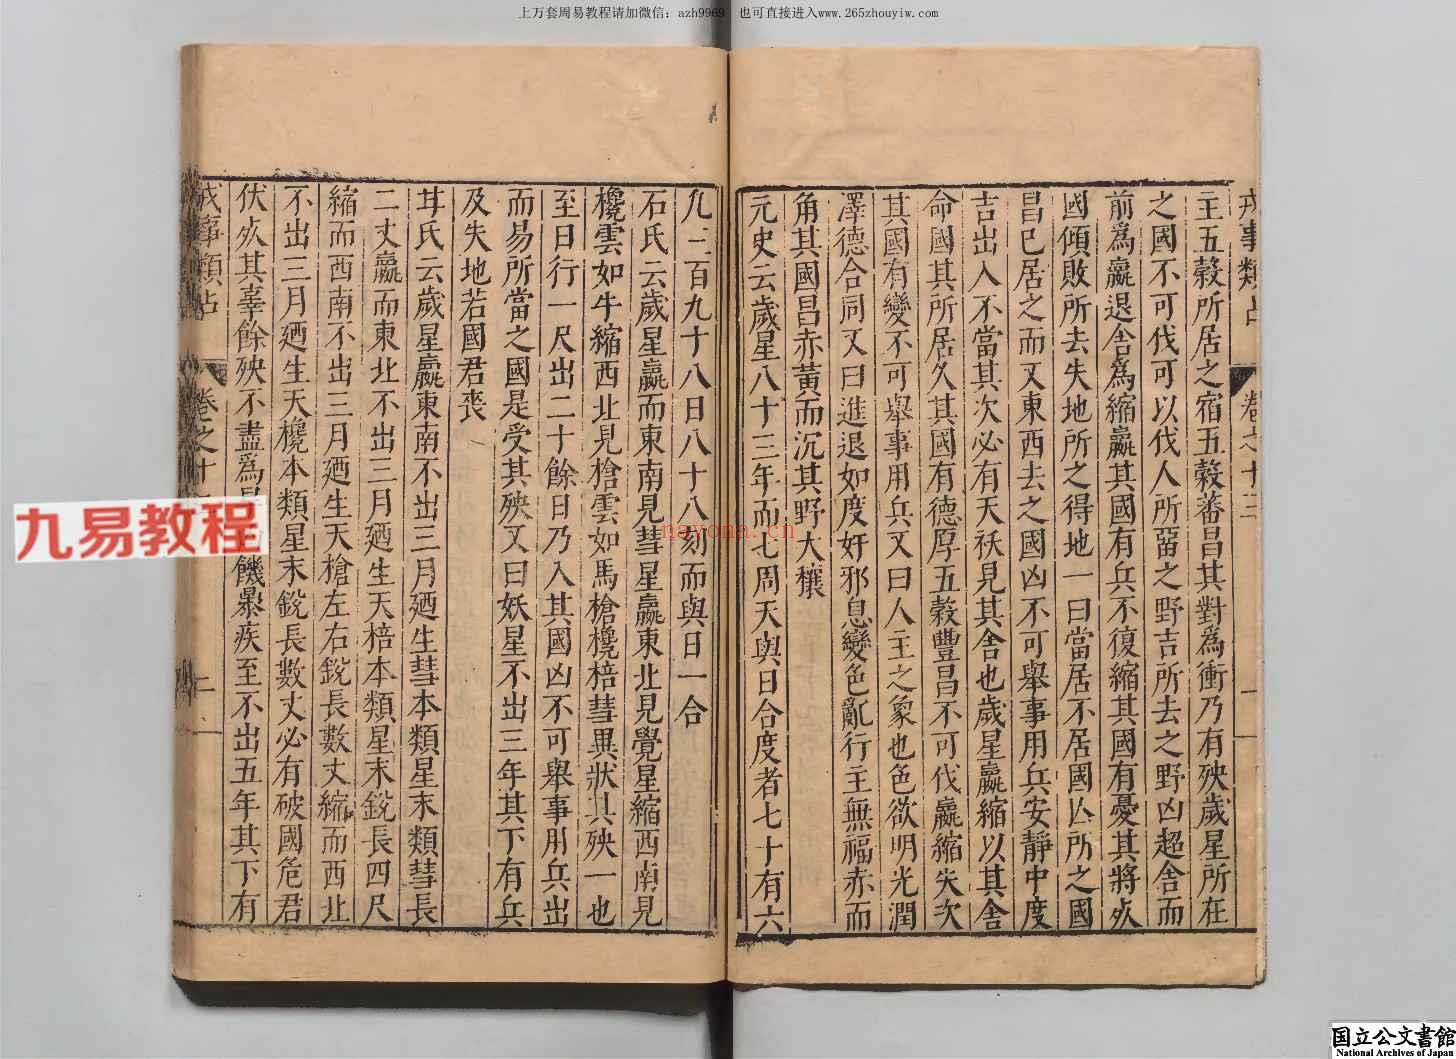 上万套周易教程请加微信：azh9969 也可直接进入www.265zhouyiw.com
戎事類占 卷之十三 一
主五穀所居之宿五穀蕃昌其對為衝乃有殃歲星所在
之國不可伐可以伐人所畱之野吉所去之野凶超舍而
前為嬴退舍為縮嬴其國有兵不復縮其國有憂其將死
國傾敗所去失地所之得地一曰當居不居國亡所之國
昌已居之而又東西去之國凶不可舉事用兵安靜中度
吉出入不當其次必有天祅見其舍也歲星嬴縮以其舍
命國其所居久其國有德厚五穀豐昌不可伐嬴縮失次
其國有變不可舉事用兵又曰人主之象也色欲明光潤
澤德合同又曰進退如度奸邪息變色亂行主無福赤而
角其國昌赤黃而沉其野大穰
元史云歲星八十三年而七周天與日合度者七十有六
凡三百九十八日八十八刻而與日一合
石氏云歲星嬴而東南見彗星嬴東北見覺星縮西南見
欃雲如牛縮西北見槍雲如馬槍欃棓彗異狀其殃一也
至日行一尺出二十餘日乃入其國凶不可舉事用兵出
而易所當之國是受其殃又曰妖星不出三年其下有兵
及失地若國君喪
甘氏云歲星嬴東南不出三月廼生彗本類星末類彗長
二丈嬴而東北不出三月廼生天棓本類星末銳長四尺
縮而西南不出三月廼生天槍左右銳長數丈縮而西北
不出三月廼生天欃本類星末銳長數丈必有破國危君
伏死其辜餘殃不盡為旱饑暴疾至不出五年其下有
戎事類占 卷之十三 二
九易教程
nayona.cn
国立公文書館
National Archives of Japan